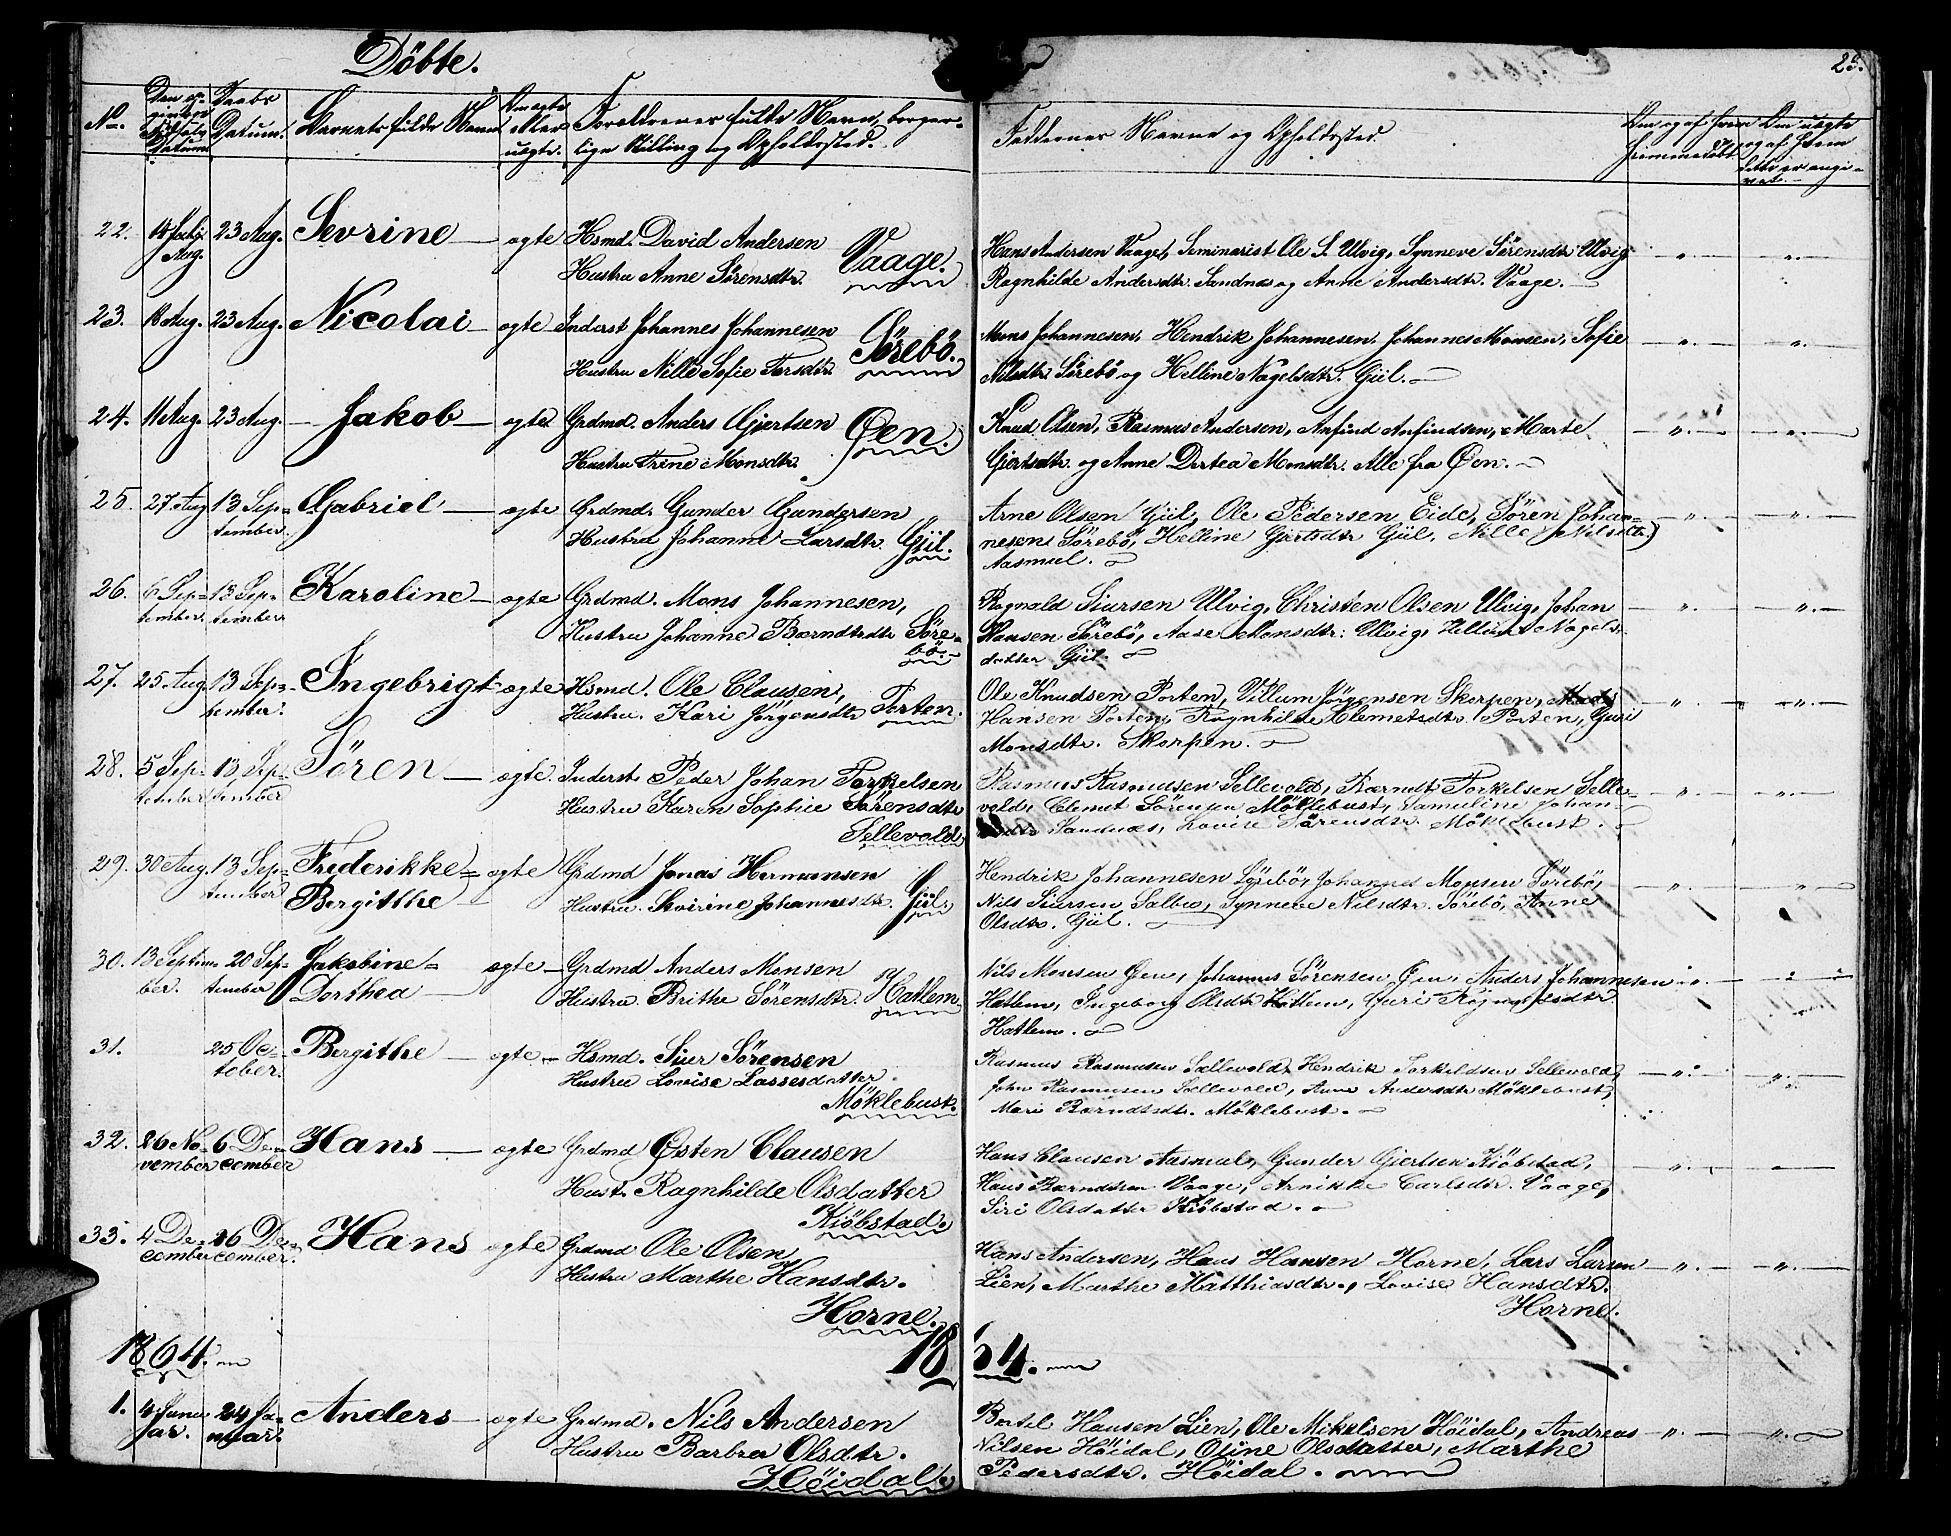 Döbte.
25.
No. Den op-givne Fødsels Datum. Daabs Datum. Barnets fulde Navn. Om ægte eller uægte. Forældrenes fulde Navn, borger-lige Stilling og Opholdssted. Faddernes Navne og Opholdssted.
22. Aug. 23 Aug. Sevrine — ægte Hsmd. David Andersen
Hustru Anne Sörensdtr. Vaage.
Hans Andersen Vaage, Seminarist Ole S. Ulvig, Synneve Sörensdtr. Ulvig
Ragnhilde Andersdtr. Sandnæs og Anne Andersdtr. Vaage.
23. 18 Aug. 23 Aug. Nicolai — ægte Inderst Johannes Johannesen
Hustru Nille Sofie Torsdtr. Sörebö.
Mons Johannesen, Hendrik Johannesen, Johannes Monsen, Sofie
Nilsdtr. Sörebö og Helline Nagelsdtr. Gül.
24. 11 Aug. 23 Aug. — Jakob — ægte Grdmd. Anders Gjertsen
Hustru Trine Monsdtr. Øen.
Knud Olsen, Rasmus Andersen, Anfind Anfindsen, Marte
Gjertsdtr. og Anne Dortea Monsdtr. Alle fra Øen.
25. 27 Aug 13 Sep-tember. Gabriel — ægte Grdmd. Gunder Gundersen
Hustru Johanne Larsdtr. Gül.
Arne Olsen Gül, Ole Pedersen Eide, Sören Johan-
nesen Sörebö, Helline Gjertsdtr Gül, Nille Nilsdtr.
Aasmul.
26. 6 Sep-tember 13 Sep-tember Karoline — ægte Grdmd. Mons Johannesen,
Hustru Johanne Bærndtsdtr Söre-bö.
Ragnald Siursen Ulvig, Christen Olsen Ulvig, Johan
Hansen Sörebö, Aase Monsdtr: Ulvig, Helline Nagels-
datter Gül.
27. 25 Aug. 13 Sep-tember. Ingebrigt ægte Hsmd. Ole Clausen,
Hustru. Kari Jörgensdtr Porten.
Ole Knudsen Porten, Villum Jörgensen Skorpen, Mads
Hansen Porten, Ragnhilde Clemetsdtr. Porten, Guri
Monsdtr. Skorpen.
28. 5 Sep-tember 13 Sep-tember Sören — ægte. Inderst. Peder Johan Torkelsen
Hustru Karen Sophie Sörensdtr
Sellevold.
Rasmus Rasmussen Sellevold, Bærndt Torkelsen Selle-
vold, Clemet Sörensen Möklebust, Samueline Johan-
Sandnæs, Lovise Sörensdtr. Möklebust.
29. 30 Aug. 13 Sep-tember Frederikke=
Bergitthe — ægte Grdmd Jonas Hermansen
Hustru. Sevirine Johannesdtr. Gül.
Hendrik Johannesen Sörebö, Johannes Monsen Sörebö,
Nils Siursen Salbu, Synneve Nilsdtr. Sörebö, Anne
Olsdtr. Gül.
30. 13 Septem-ber. 20 Sep-tember Jakobine=
Dorthea — ægte — Grdmd Anders Monsen
Hustru Brithe Sörensdtr. Hatlem.
Nils Monsen Øen, Johannes Sörensen Øen, Anders Johannesen
Hatlem, Ingeborg Olsdtr Hatlem, Guri
Hatlem.
31. 25 Oc-tober. Bergithe — ægte — Hsmd. Siur Sörensen
Hustru Lovise Lassesdatter.
Möklebust.
Rasmus Rasmusen Sællevold, Hendrik Torkildsen Sellevold,
John Rasmusen Sellevold, Anne Andersdtr Möklebust,
Mari Bærndtsdtr. Möklebust.
32. 26 No-vember 6 De-cember Hans — ægte Grdmd Østen Clausen
Hust. Ragnhilde Olsdatter
Kiöbstad.
Hans Clausen Aasmul, Gunder Gjertsen Kiöbstad,
Hans Bærndtsen Vaage, Arnikke Carlsdtr. Vaage,
Siri Olsdatter Kiöbstad.
33. 4 De-cember 26 De-cember. Hans ægte Grdmd Ole Olsen,
Hustru Marthe Hansdtr.
Horne.
Hans Andersen, Hans Hansen Horne, Lars Larsen
Lien, Marthe Matthiasdtr., Lovise Hansdtr.
Horne.
1864. 1864.
1. 4 Janu-ar. 24 Ja-nuar. Anders — ægte Grdmd. Nils Andersen
Hustru Barbra Olsdtr.
Höidal.
Bertel Hansen Lien, Ole Mikelsen Höidal, Andreas
Nilsen Höidal, Oline Olsdatter, Marthe
Pedersdtr. Höidal.